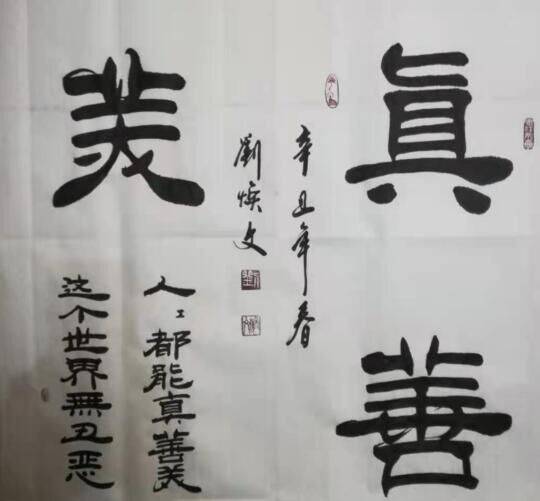 真
善
美
人〻都能真善美
这个世界無丑恶
辛丑年春
劉焕文